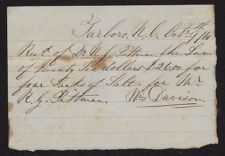 Tarboro N.C. Oct
Recd of Pittman the Sum
of Twenty Six dollars $26.00 for
four Sacks of Salt for Mr
R. G. Pittman. Wm Davison.